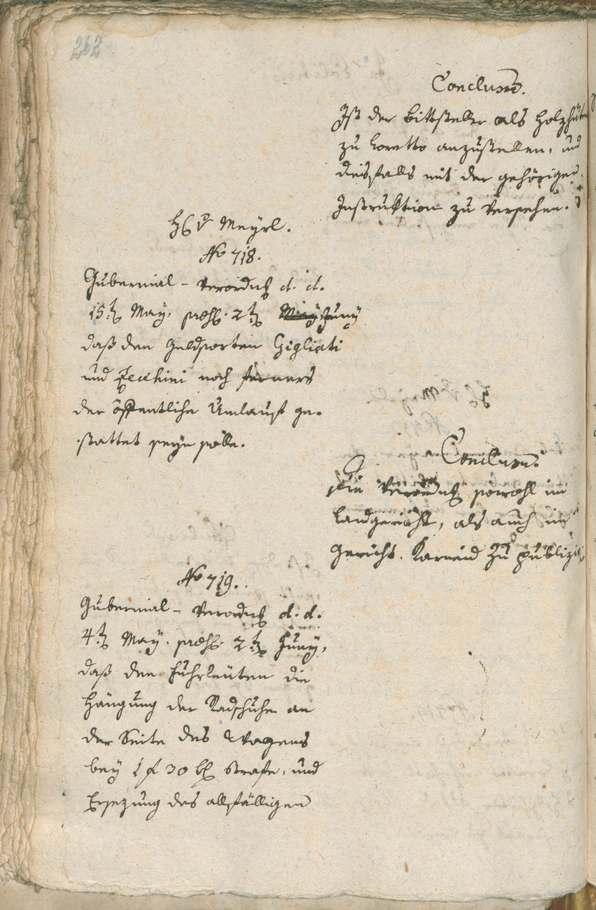 262
Conclusum.
Ist der Bittsteller als Holzhüt
zu Loretto anzustellen, und
diesfalls mit der gehörigen
Instruktion zu versehen.
H. v. Meyrl.
No 718.
Gubernial-Verordng d. d.
15t May, präs. 2t May Juny
daß den Geldsorten Gigliati
und Zechini noch ferners
der öffentliche Umlauf ge-
stattet seyn solle.
Conclusum.
Die Verordng sowohl im
Landgericht, als auch im
Gericht Karneid zu publizi
No 719.
Gubernial-Verordng d. d.
4t May präs. 2t Juny,
daß den Fuhrleuten die
Hängung der Radschuhe an
der Seite des Wagens
bey 1 f 30 Strafe, und
Ersezung des allfälligen